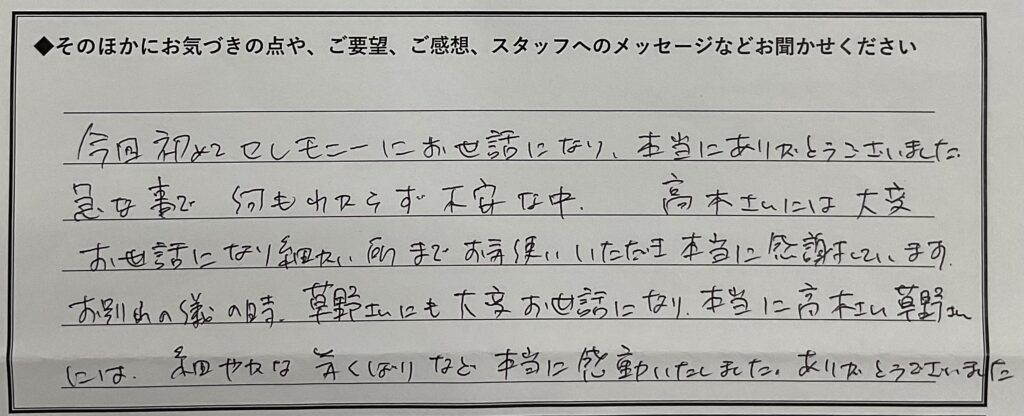 ◆そのほかにお気づきの点や、ご要望、ご感想、スタッフへのメッセージなどお聞かせください
今回初めてセレモニーにお世話になり、本当にありがとうございました。
急な事で 何もわからず不安な中、 高木さんには大変
お世話になり細かい所までお気使いいただき本当に感謝しています。
お別れの儀の時、草野さんにも大変お世話になり、本当に高木さん草野さん
には、細やかな気くばりなど本当に感動いたしました。ありがとうございました